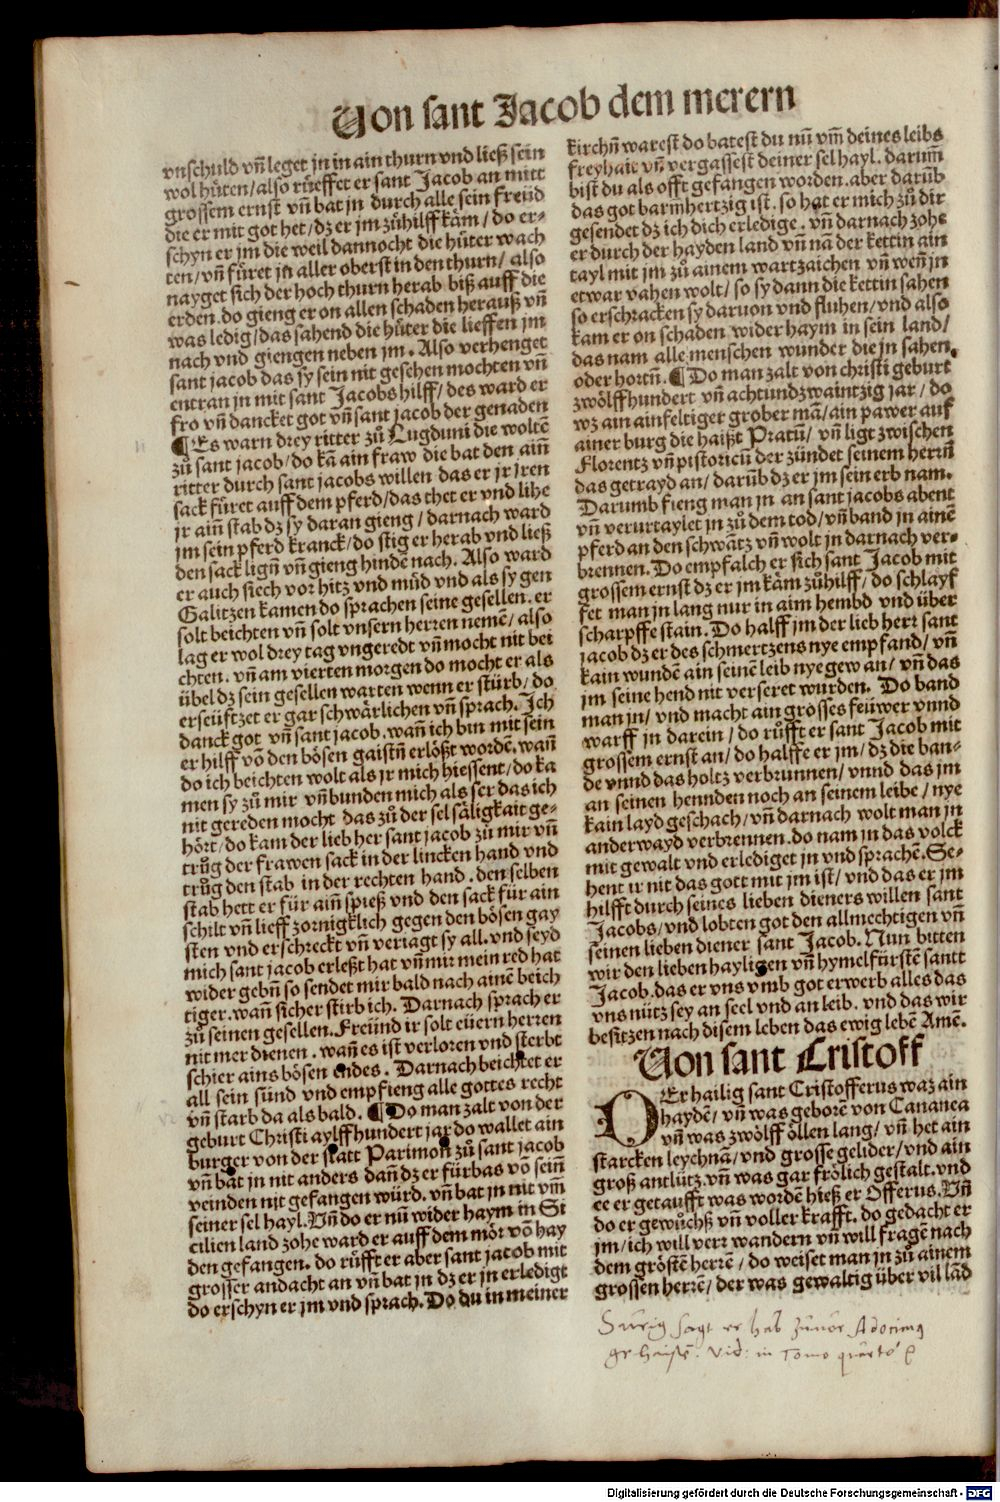 Von sant Jacob dem merern
vnschuld vñ leget jn in ain thurn vnd ließ sein
wol hüten/also rüeffet er sant Jacob an mitt
grossem ernst vñ bat jn durch alle sein freüd
die er mit got het/dz er jm zůhilff käm/do er-
schyn er jm die weil dannocht die hüter wach
ten/vñ füret jn aller oberst in den thurn/also
nayget sich der hoch thurn herab biß auff die
erden.do gieng er on allen schaden herauß vñ
was ledig/das sahend die hüter die lieffen jm
nach vnd giengen neben jm. Also verhenget
sant jacob das sy sein nit gesehen mochten vñ
entran jn mit sant Jacobs hilff/des ward er
fro vñ dancket got vñ sant jacob der genaden
¶Es warn drey ritter zů Lugduni die woltē
zů sant jacob/do kā ain fraw die bat den aiñ
ritter durch sant jacobs willen das er jr jren
sack füret auff dem pferd/das thet er vnd lihe
jr aiñ stab dz sy daran gieng/darnach ward
jm sein pferd kranck/do stig er herab vnd ließ
den sack ligñ vñ gieng hindē nach. Also ward
er auch siech vor hitz vnd müd vnd als sy gen
Galitzen kamen do sprachen seine gesellen.er
solt beichten vñ solt vnsern herren nemē/also
lag er wol drey tag vngeredt vñ mocht nit bei
chten. vñ am vierten morgen do mocht er als
übel dz sein gesellen warten wenn er stürb/do
erseüftzet er gar schwärlichen vñ sprach. Ich
danck got vñ sant jacob.wañ ich bin mit sein
er hilff võ den bösen gaistñ erlößt wordē.wañ
do ich beichten wolt als jr mich hiessent/do ka
men sy zů mir vñ bunden mich als ser das ich
nit gereden mocht das zů der sel säligkait ge-
hört/do kam der lieb her sant jacob zů mir vñ
trůg der frawen sack in der lincken hand vnd
trůg den stab in der rechten hand.den selben
stab hett er für aiñ spieß vnd den sack für ain
schilt vñ lieff zornigklich gegen den bösen gay
sten vnd erschreckt vñ veriagt sy all.vnd seyd
mich sant jacob erleßt hat vñ mir mein red hat
wider gebñ so sendet mir bald nach ainē beich
tiger.wañ sicher stirb ich. Darnach sprach er
zů seinen gesellen.Freünd ir solt eüern herren
nit mer dienen.wañ es ist verloren vnd sterbt
schier ains bösen endes. Darnach beichtet er
all sein sünd vnd empfieng alle gottes recht
vñ starb da als bald. ¶Do man zalt von der
geburt Christi aylffhundert jar do wallet ain
burger von der statt Parimon zů sant jacob
vñ bat jn nit anders dañ dz er fürbas võ seiñ
veinden nit gefangen würd.vñ bat jn nit vm̄
seiner sel hayl.Vñ do er nū wider haym in Si
cilien land zohe ward er auff dem mör võ hay
den gefangen.do růfft er aber sant jacob mit
grosser andacht an vñ bat jn dz er jn erledigt
do erschyn er jm vnd sprach.Do du in meiner
kirchñ warest do batest du nū vm̄ deines leibs
freyhait vñ vergassest deiner sel hayl.darum̄
bist du als offt gefangen worden.aber darūb
das got barmhertzig ist.so hat er mich zů dir
gesendet dz ich dich erledige.vñ darnach zohe
er durch der hayden land vñ nā der kettin ain
tayl mit jm zů ainem wartzaichen vñ weñ jn
etwar vahen wolt/so sy dann die kettin sahen
so erschracken sy daruon vnd fluhen/vnd also
kam er on schaden wider haym in sein land/
das nam alle menschen wunder die jn sahen.
oder hortñ. ¶Do man zalt von christi geburt
zwölffhundert vñ achtundzwaintzig jar/do
wz ain ainfeltiger grober mā/ain pawer auf
ainer burg die haißt Pratū/vñ ligt zwischen
Florentz vñ pistoricū der zündet seinem heriñ
das getrayd an/darūb dz er jm sein erb nam.
Darumb fieng man jn an sant jacobs abent
vñ verurtaylet jn zů dem tod/vñ band jn ainē
pferd an den schwātz vñ wolt jn darnach ver-
brennen.Do empfalch er sich sant Jacob mit
grossem ernst dz er jm käm zůhilff/do schlayf
fet man jn lang nur in aim hembd vnd über
scharpffe stain.Do halff jm der lieb herr sant
jacob dz er des schmertzens nye empfand/vñ
kain wundē ain seinē leib nye gewan/vñ das
jm seine hend nit verseret wurden. Do band
man jn/vnd macht ain grosses feüwer vnnd
warff jn darein/do růfft er sant Jacob mit
grossem ernst an/do halffe er jm/dz die ban-
de vnnd das holtz verbrunnen/vnnd das jm
an seinen hennden noch an seinem leibe/nye
kain layd geschach/vñ darnach wolt man jn
anderwayd verbrennen.do nam jn das volck
mit gewalt vnd erlediget jn vnd sprachē.Se-
hent ir nit das gott mit jm ist/vnd das er jm
hilfft durch seines lieben dieners willen sant
Jacobs/vnd lobten got den allmechtigen vñ
seinen lieben diener sant Jacob. Nun bitten
wir den lieben hayligen vñ hymelfürstē santt
Jacob.das er vns vmb got erwerb alles das
vns nütz sey an seel vnd an leib.vnd das wir
besitzen nach disem leben das ewig lebē Amē.
Von sant Cristoff
DEr hailig sant Cristofferus waz ain
haydē/vñ was geborē von Cananea
vñ was zwölff öllen lang/vñ het ain
starcken leychnā/vnd grosse gelider/vnd ain
groß antlütz.vñ was gar frölich gestalt.vnd
ee er getaufft was wordē hieß er Offerus.Vñ
do er gewůchß vñ voller krafft.do gedacht er
jm/ich will verr wandern vñ will fragē nach
dem gröstē herrē/do weiset man jn zů ainem
grossen herrē/der was gewaltig über vil lād
Surig sagt er hab zuuor Adocimus
gehaissē. Vid: in Tomo quarto
Digitalisierung gefördert durch die Deutsche Forschungsgemeinschaft - DFG